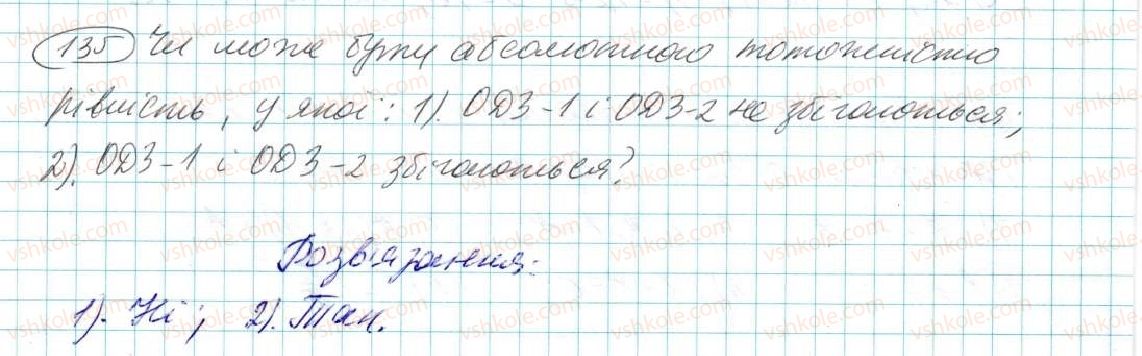 135 Чи може бути абсолютною тотожністю
рівність, у якої: 1). ОДЗ-1 і ОДЗ-2 не збігаються;
2). ОДЗ-1 і ОДЗ-2 збігаються?
Розв'язання:
1). Ні; 2). Так.